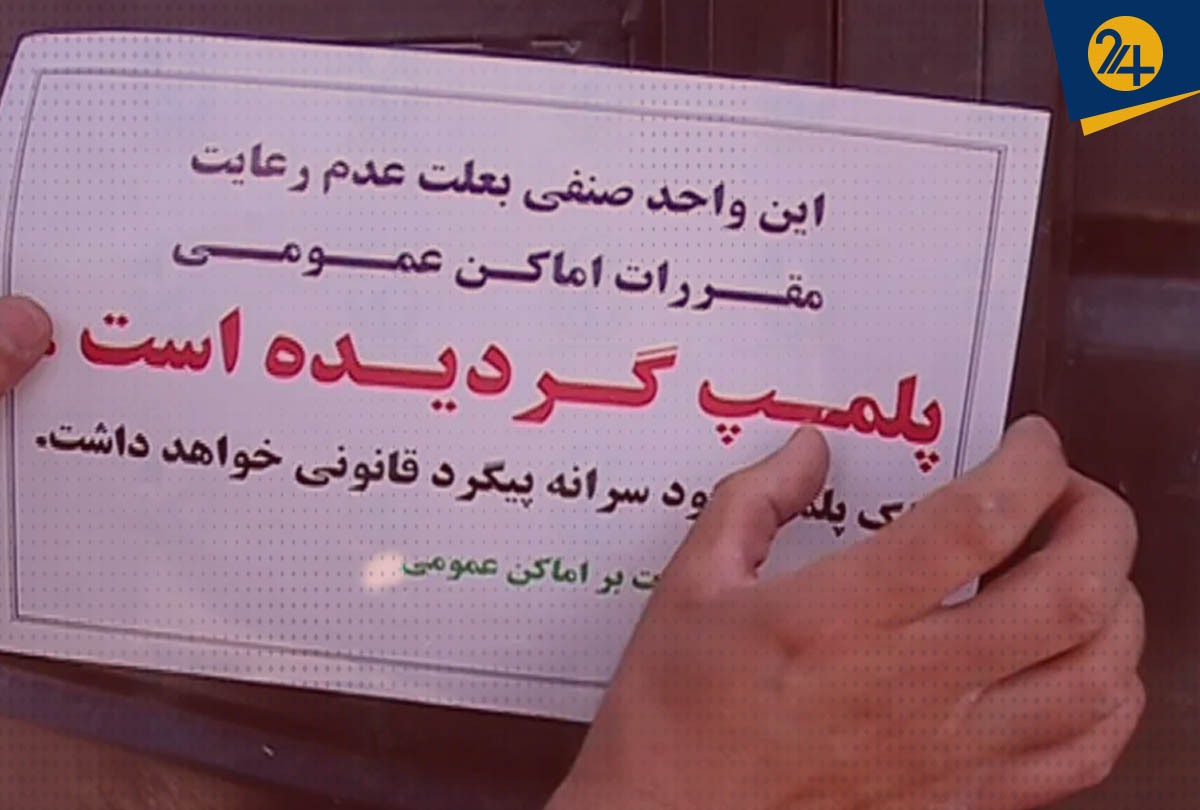 24
این واحد صنفی بعلت عدم رعایت
مقــررات اماکــن عمــومــی
پلمــپ گــردیــده است .
سرانه پیگرد قانونی خواهد داشت.
بر اماکن عمومی